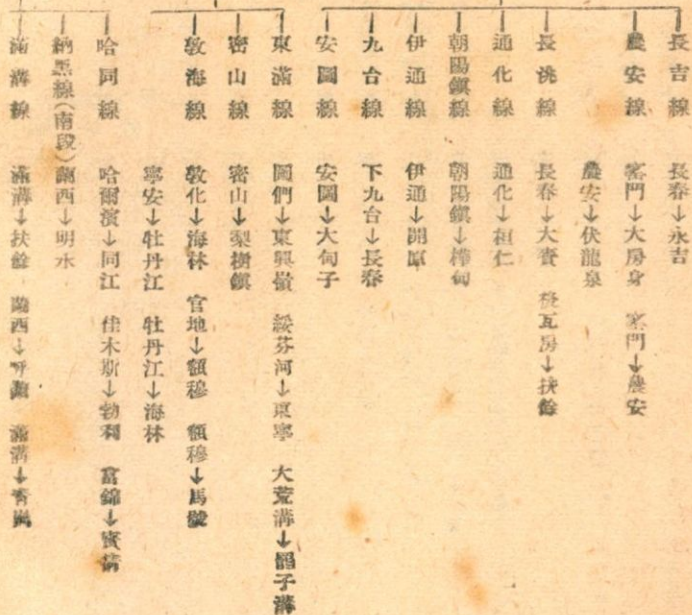 長吉線 長春→永吉
農安線 窰門→大房身 窰門→農安
農安→伏龍泉
長洮線 長春→大賚 瓦房→扶餘
通化線 通化→桓仁
朝陽鎮線 朝陽鎮→樺甸
伊通線 伊通→開原
九台線 下九台→長春
安圖線 安圖→大甸子
東滿線 圖們→東興嶺 綏芬河→東寧 大荒溝→子溝
密山線 密山→梨樹鎮
敦海線 敦化→海林 官地→額穆 額穆→馬
寧安→牡丹江 牡丹江→海林
哈同線 哈爾濱→同江 佳木斯→勃利 富錦→寶清
納黑線(南段) 蘭西→明水
滿溝線 滿溝→扶餘 蘭西→呼蘭 滿溝→青岡